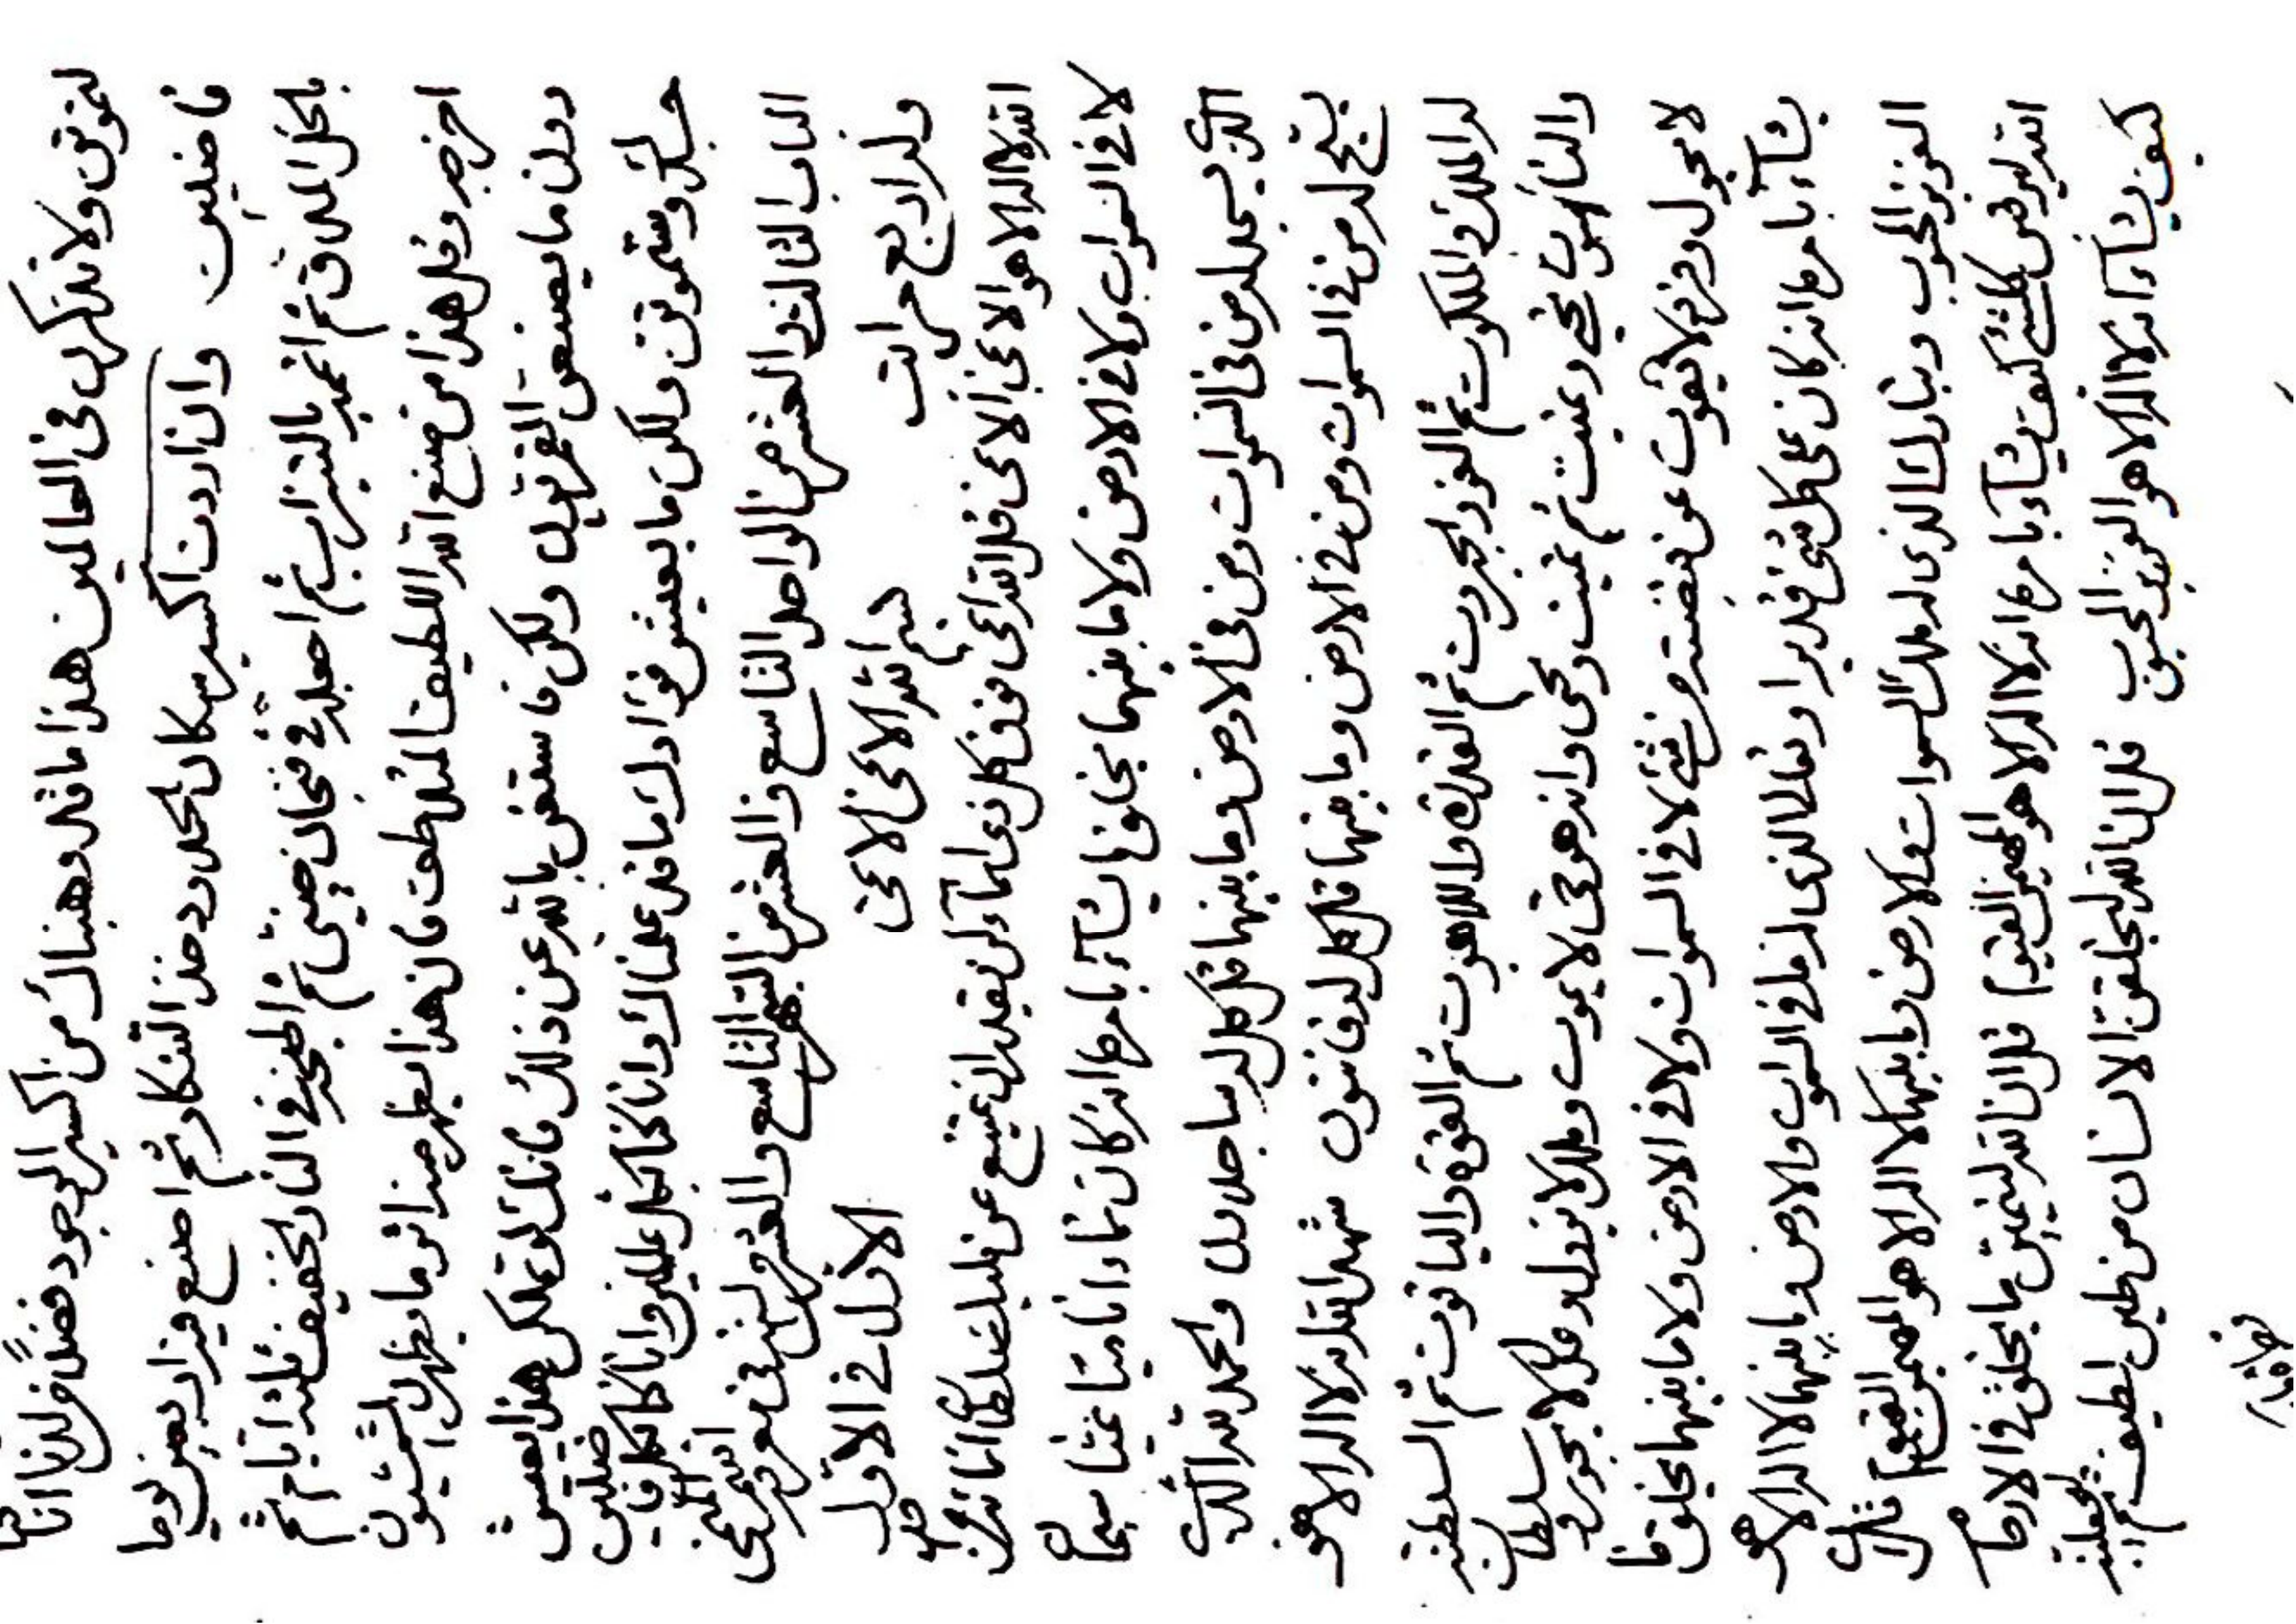 لتموتن ولا تذكرن فى العالمين هذا ما قل وهناك من اكسير الوجود فضلا من لدنا انا كنا
فاضلين وان اردت اكسير سكان الخل ود خذ التنكار ثم اصنع فيه اربعين يوما
بالخل الملاق ثم اغمد بالتراب ثم اجعله فى فنجان صينى ثم اطبخه فى النار الخفيف ثلثة ايام ثم
اخرجه وقل هذا من صنع الله اللطيف المتلطف فان هذا يظهر منه اثر ما يظهر الشمسيون
دون ما يصنعون القمريون ولكن فاستغن بالله عن ذلك فانك لو تملكن هذا بعيش
ستموتن ولكن ما يعيش فؤادك ما قد علمناك وانا كنا بكل عالمين وانا كنا لكل فاضلين
الباب الثالث والعشر من الواحد التاسع والعشر من الشهر التاسع والعشر من السنة فى معرفة اسم المغنى
وله اربع مراتب
الاول فى الاول
بسم الله الاغنى الاغنى
الله لا اله الا هو الاغنى الاغنى قل الله اغنى فوق كل ذى اغناء لن يقدر ان يمتنع عن مليك سلطان اغنائه من احد
لا فى السموات ولا فى الارض ولا ما بينهما يخلق ما يشآء بامره انه كان غناء غانيا غنيا سبحان
الذى يسجد له من فى السموات ومن فى الارض وما بينهما قل كل له ساجدون والحمد لله الذى
يسبح له من فى السموات ومن فى الارض وما بينهما قل كل له قانتون شهد الله انه لا اله الا هو
له الملك والملكوت ثم العز والجبروت ثم القدرة واللاهوت ثم القوة والياقوت ثم السلطنة
والناسوت يحيى ويميت ثم يميت ويحيى وانه هو حى لا يموت وملك لا يزول وعدل لا يجور وسلطان
لا يحول وفرد لا يفوت عن قبضته من شئ لا فى السموات ولا فى الارض ولا ما بينهما يخلق ما
يشآء بامره انه كان على كل شئ قديرا وتعالى الذى له ما فى السموات والارض وما بينهما لا اله الا هو
العزيز المحبوب وتبارك الذى له ملك السموات والارض وما بينهما لا اله الا هو المهيمن القيوم
الله ليرفعن كلشئ كيف يشآء بامره انه لا اله الا هو المهيمن القيوم قل ان الله ليغنين ما يخلق فى الارحام
كيف يشآء انه لا اله الا هو العزيز المحبوب قل ان الله ليخلقن الانسان من طين لطيف ثم